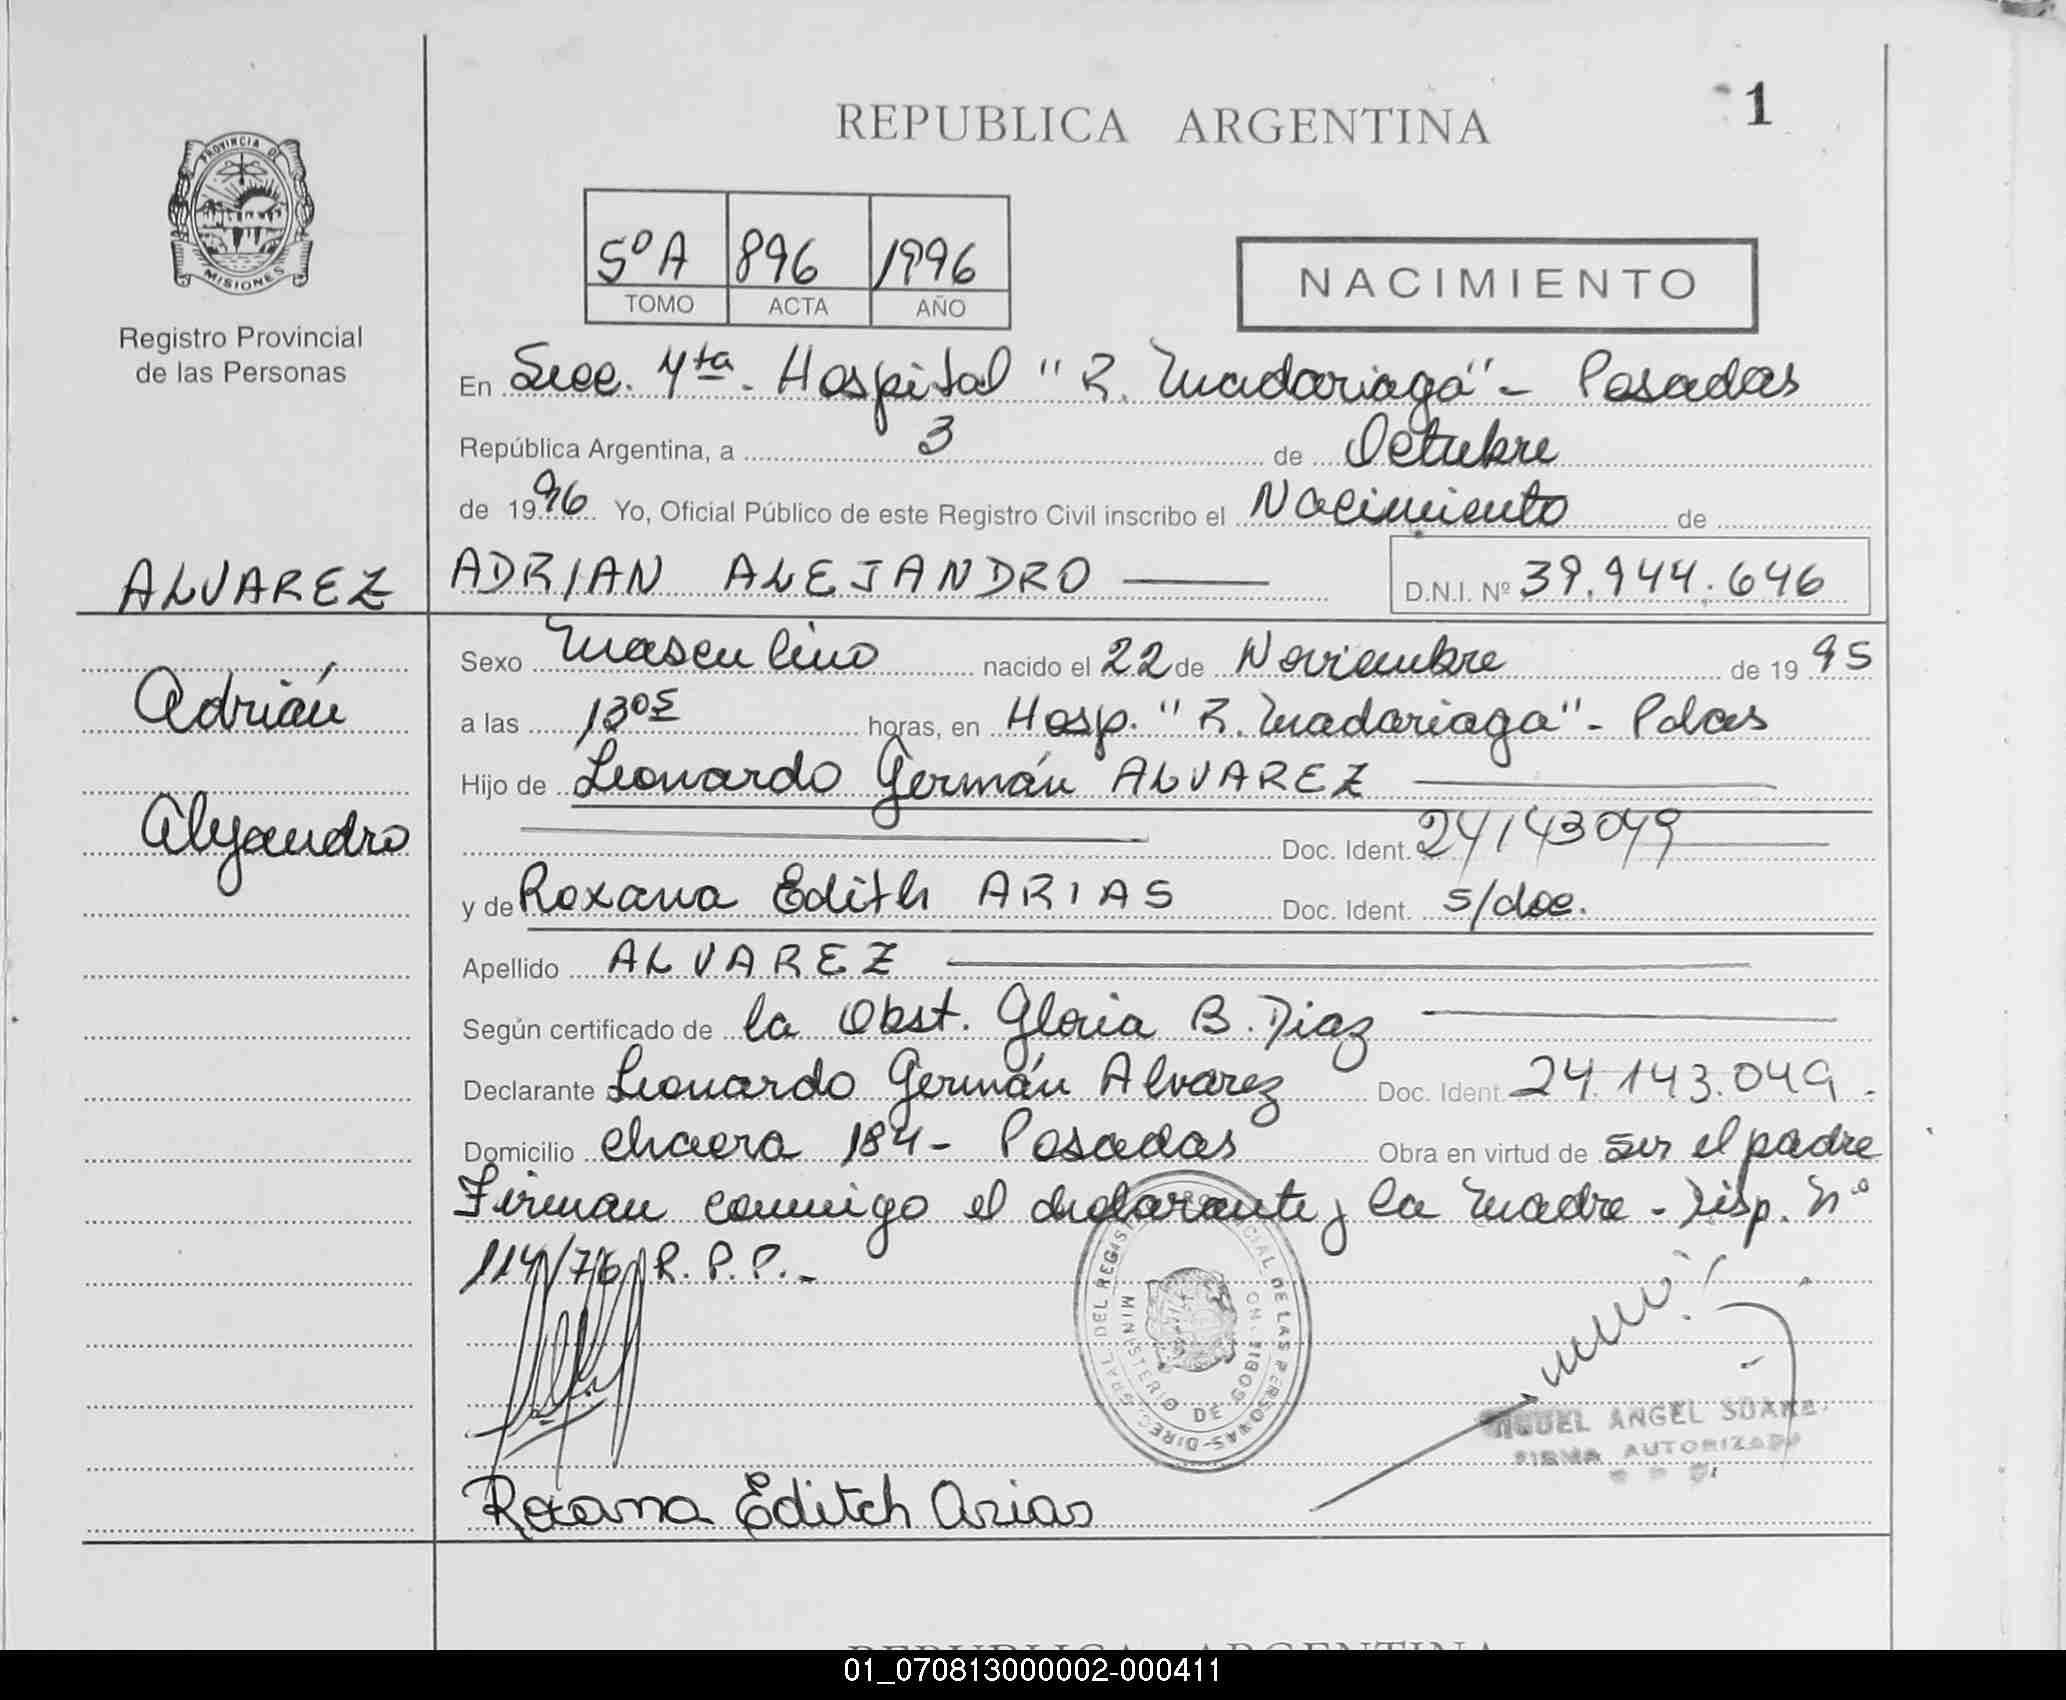 1
REPUBLICA ARGENTINA
PROVINCIA DE
MISIONES
Registro Provincial
de las Personas
5º A 896 1996
TOMO ACTA AÑO
NACIMIENTO
En Secc. 4ta. Hospital "R. Madariaga" - Posadas
República Argentina, a 3 de Octubre
de 1996 Yo, Oficial Público de este Registro Civil inscribo el Nacimiento de
ALVAREZ ADRIAN ALEJANDRO D.N.I. Nº 39.944.646
Adrián
Alejandro
Sexo Masculino nacido el 22 de Noviembre de 1995
a las 1305 horas, en Hosp. "R. Madariaga" - Pdas
Hijo de Leonardo Germán ALVAREZ
Doc. Ident. 24143049
y de Roxana Edith ARIAS Doc. Ident. s/doc.
Apellido ALVAREZ
Según certificado de la Obst. Gloria B. Diaz
Declarante Leonardo Germán Alvarez Doc. Ident. 24.143.049.
Domicilio chacra 184 - Posadas Obra en virtud de ser el padre
Firman conmigo el declarante y la madre - Disp. Nº
114/76 R.P.P.-
MINISTERIO DE GOBIERNO
MIGUEL ANGEL SUAREZ
FIRMA AUTORIZADA
Roxana Editch Arias
REPUBLICA ARGENTINA
01_070813000002-000411